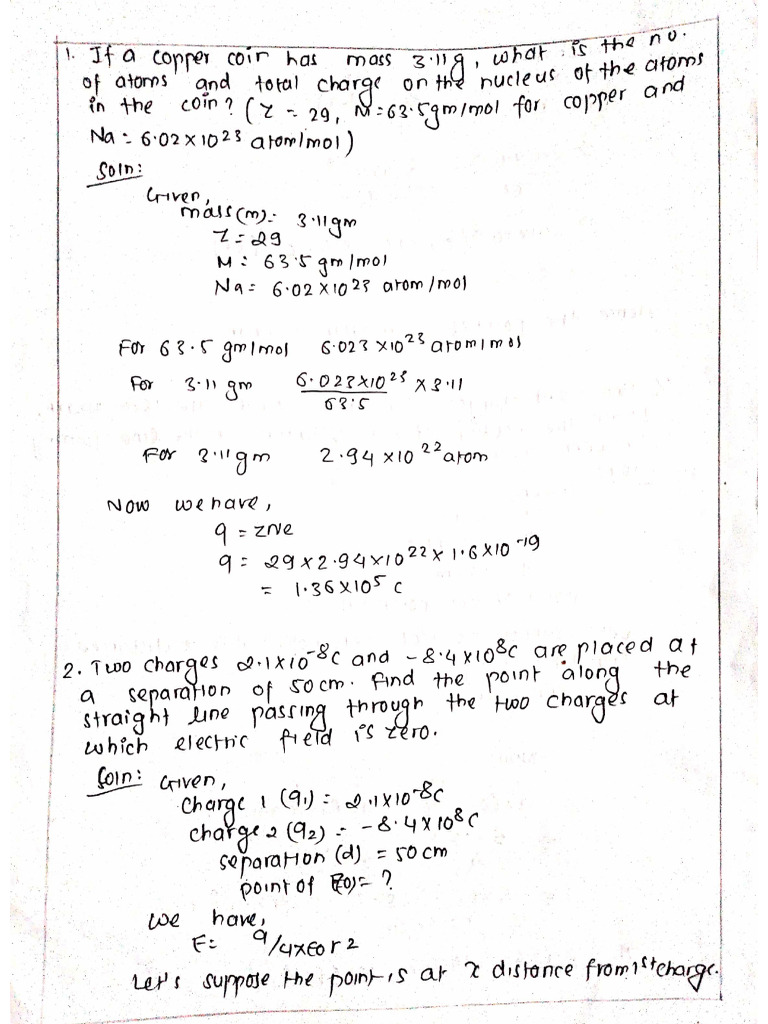 1. If a copper coin has mass 3.11g, what is the no.
of atoms and total charge on the nucleus of the atoms
in the coin? (Z = 29, M=63.5gm/mol for copper and
Na = 6.02×10^23 atom/mol)
Soln:
Given,
mass(m)= 3.11gm
Z=29
M= 63.5 gm/mol
Na= 6.02×10^23 atom/mol
For 63.5 gm/mol 6.023×10^23 atom/mol
For 3.11 gm 6.023×10^23/63.5 ×3.11
For 3.11gm 2.94×10^22 atom
Now we have,
q = zne
q = 29×2.94×10^22×1.6×10^-19
= 1.36×10^5 C
2. Two charges 2.1×10^-8C and -8.4×10^8C are placed at
a separation of 50cm. Find the point along the
straight line passing through the two charges at
which electric field is zero.
Soln: Given,
Charge 1 (q1) = 2.1×10^-8C
charge 2 (q2) = -8.4×10^8C
separation (d) = 50cm
point of = ?
We have,
E= q/4πε0r2
Let's suppose the point is at x distance from 1st charge.